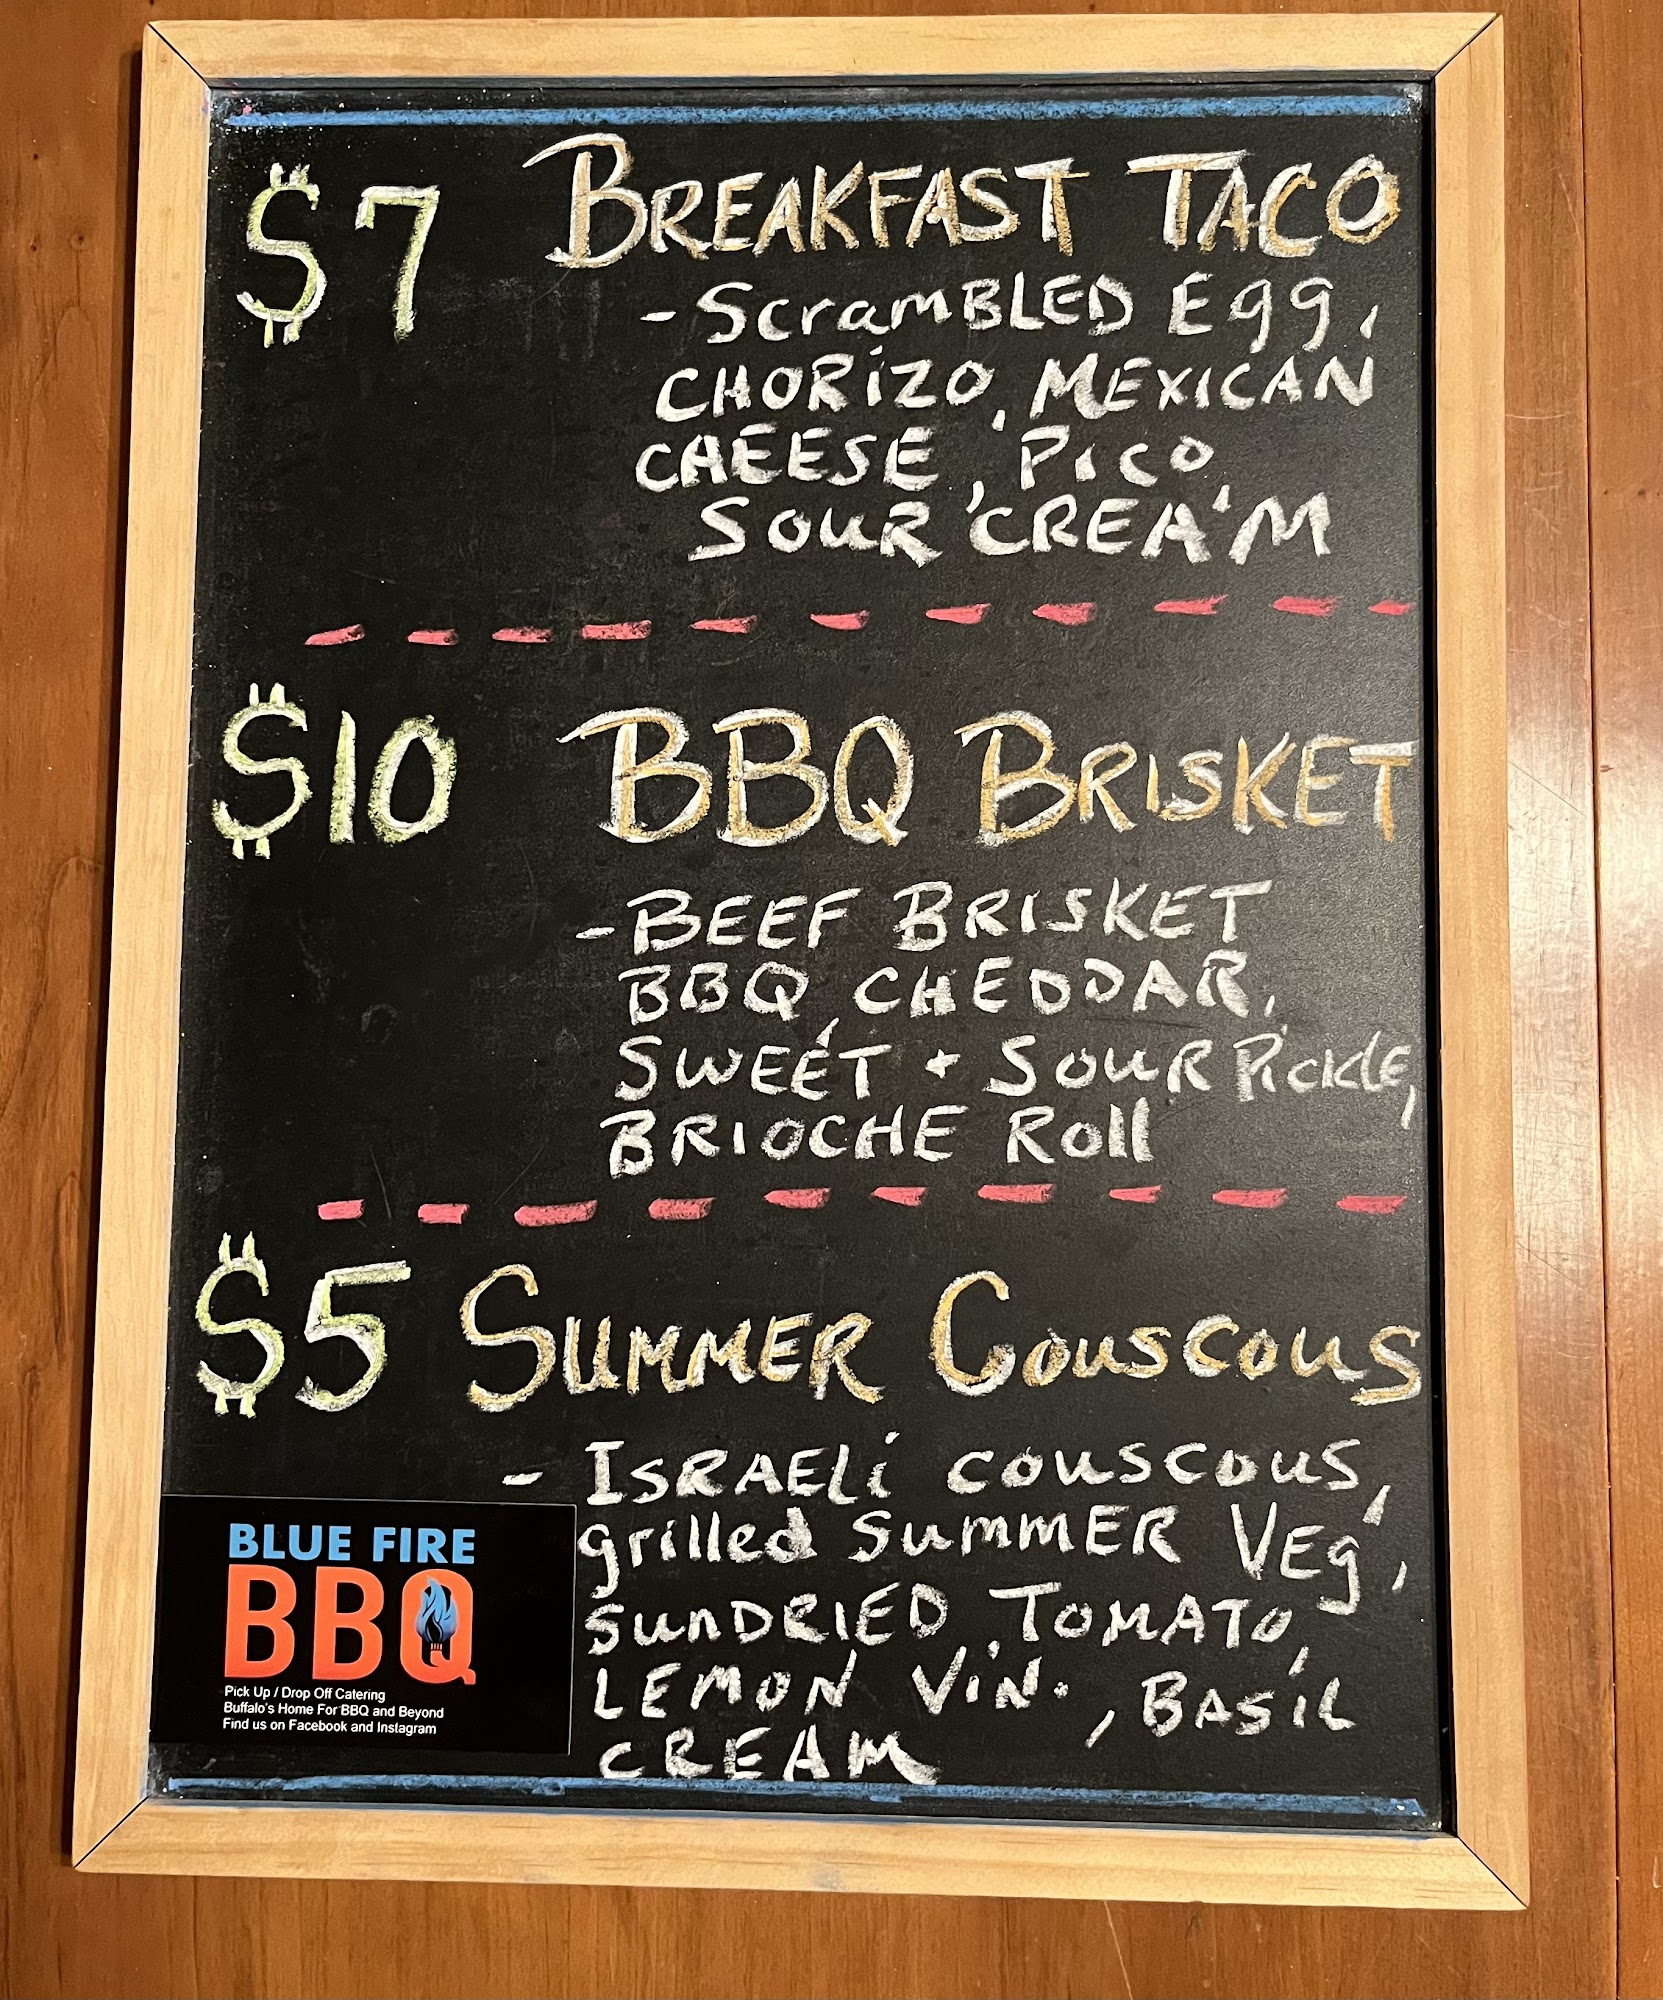 $7 BREAKFAST TACO
- ScramBLED Egg,
CHORiZO, MEXICAN
CHEESE, PICO,
SOUR CREAM
$10 BBQ BRISKET
- BEEF BRISKET
BBQ, CHEDDAR,
SWEET + SOUR PiCKLE,
BRIOCHE Roll
$5 SUMMER COUSCOUS
- ISRAELi COUSCOUS,
grilled SUMMER VEg,
SUNDRIED TOMATO,
LEMON ViN., BASiL
CREAM
BLUE FIRE
BBQ
Pick Up / Drop Off Catering
Buffalo's Home For BBQ and Beyond
Find us on Facebook and Instagram